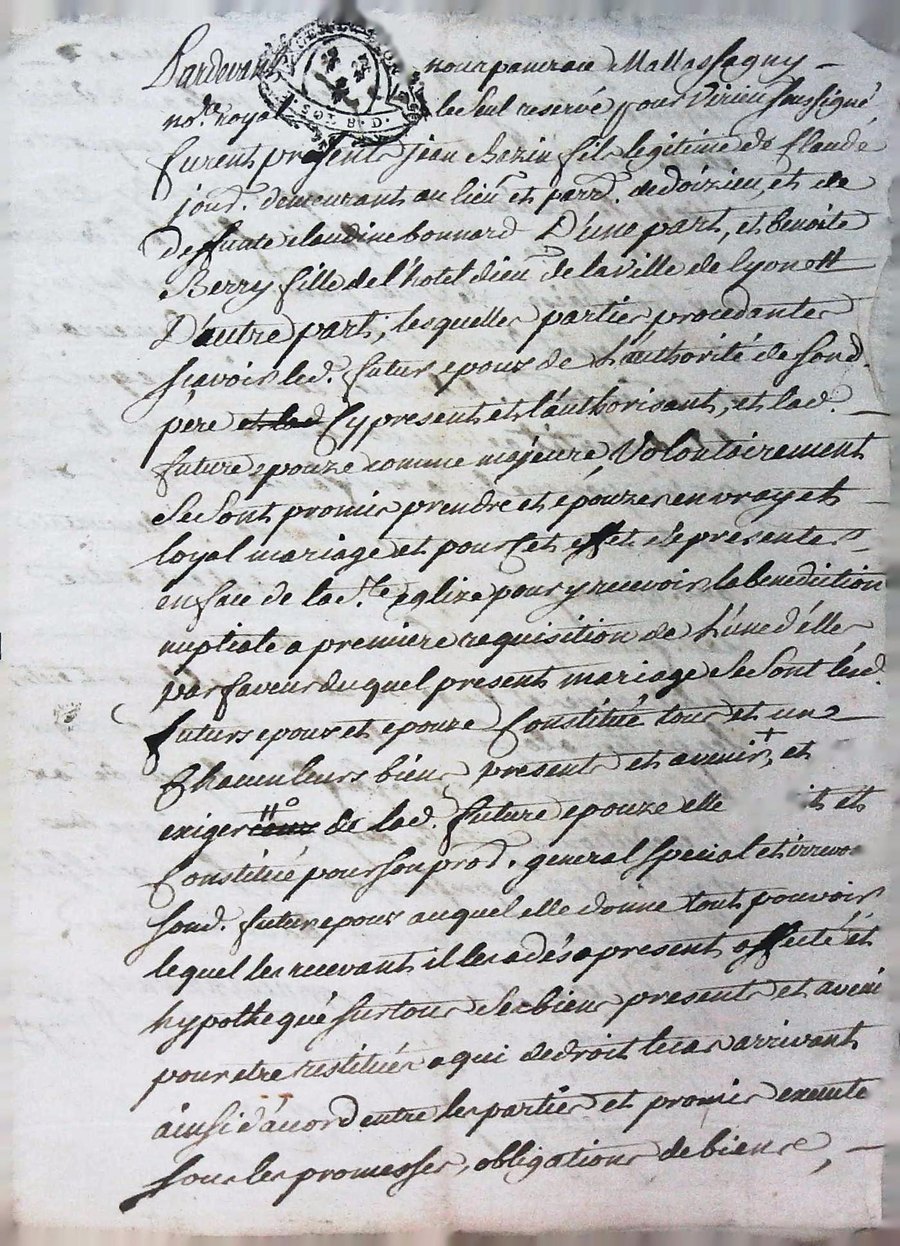 Pardevant nous pancrace Mallassagny
no.re royal le seul reservé pour Virieu soussigné
furent presents jean Bazin fils legitime de Claude
jourd. demeurant au lieu et parr.e de doizieu, et de
defunte claudine bonnard D'une part, et benoite
Berry fille de l'hotel dieu de la ville de lyon
D'autre part, lesquelles parties procedantes
scavoir led. futur epoux de l'authorité de sond.
pere et lad Cy present et l'authorisant, et lad.
future epouze comme majeure, Volontairement
se sont promis prendre et épouzer en vray et
loyal mariage et pour cet effet se presenter
en face de la S.te eglize pour y recevoir la benediction
nuptiale a premiere requisition de l'une d'elles
par faveur duquel present mariage se sont lesd.
futurs epoux et epouze Constitué tous et un
Chacun leurs biens presents et avenir, et
exiger ceux de lad. future epouze elle et
Constitué pour son prod. general special et irrevo
sond. futur epoux auquel elle donne tout pouvoir
lequel les recevant il les a dés a present affecté et
hypothequé sur tous ses biens presents et avenir
pour etre restitués a qui de droit le cas arrivant
ainsi d'acord entre les parties et promis execute
sous les promesses, obligations de biens,